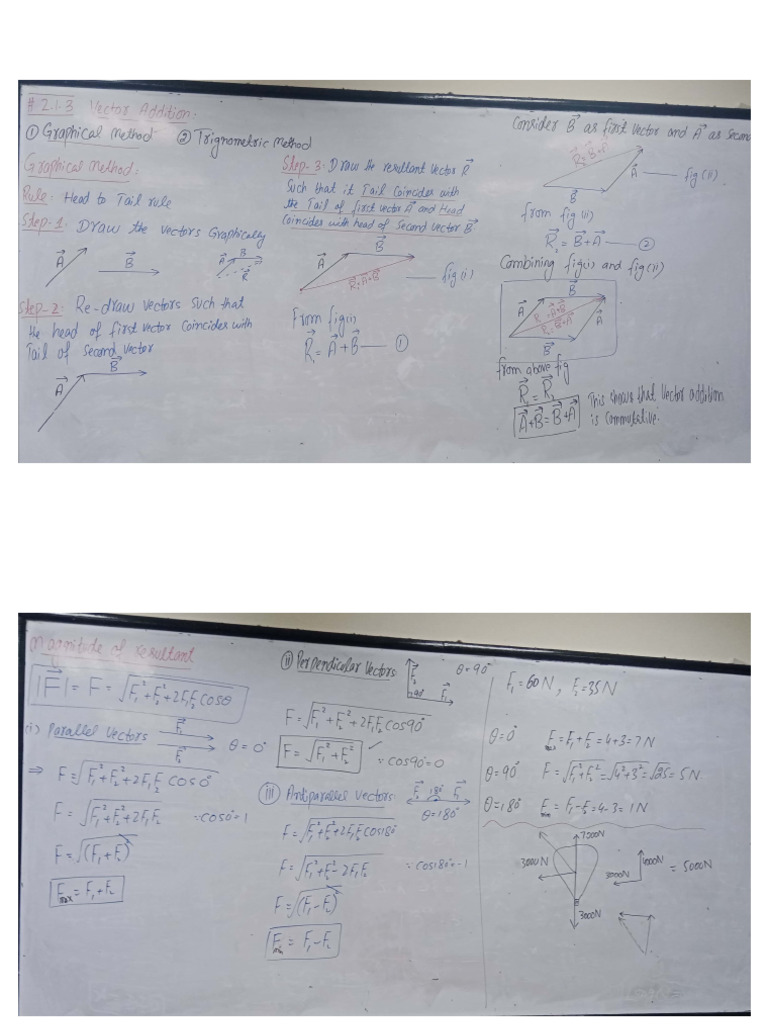 # 2.1.3 Vector Addition:
① Graphical Method ② Trignometric Method
Graphical Method:
Rule: Head to Tail rule
Step-1: Draw the vectors Graphically
A⃗ B⃗ A⃗ B⃗ R⃗
Step-2: Re-draw vectors such that
the head of first vector coincides with
Tail of second vector
A⃗ B⃗
Step-3: Draw the resultant vector R⃗
Such that it Tail Coincides with
the Tail of first vector A⃗ and Head
Coincides with head of Second vector B⃗
A⃗ B⃗ R⃗₁=A⃗+B⃗ — fig(i)
From fig(i)
R⃗₁ = A⃗+B⃗ — ①
Consider B⃗ as first vector and A⃗ as Secon
R⃗₂=B⃗+A⃗ A⃗ B⃗ — fig(ii)
from fig (ii)
R⃗₂ = B⃗+A⃗ — ②
Combining fig(i) and fig(ii)
B⃗
A⃗ R⃗₁=A⃗+B⃗ R⃗₂=B⃗+A⃗ A⃗
B⃗
from above fig
R⃗₁ = R⃗₂
A⃗+B⃗=B⃗+A⃗ This shows that vector addition
is commutative.
Magnitude of resultant
|F⃗| = F = √F₁²+F₂²+2F₁F₂cosθ
(i) Parallel Vectors F⃗₁
F⃗₂ θ=0°
⇒ F=√F₁²+F₂²+2F₁F₂cos0°
F=√F₁²+F₂²+2F₁F₂ ∵cos0°=1
F=√(F₁+F₂)²
Fmax=F₁+F₂
(ii) Perpendicular Vectors F⃗₂ 90° F⃗₁ θ=90°
F=√F₁²+F₂²+2F₁F₂cos90°
F=√F₁²+F₂² ✓ ∵cos90°=0
(iii) Antiparallel Vectors: F⃗₂ 180° F⃗₁
θ=180°
F=√F₁²+F₂²+2F₁F₂cos180°
F=√F₁²+F₂²-2F₁F₂ ∵cos180°=-1
F=√(F₁-F₂)²
Fmin = F₁-F₂
F₁=60N, F₂=35N
θ=0° Fmax=F₁+F₂=4+3=7N
θ=90° F=√F₁²+F₂²=√4²+3²=√25=5N
θ=180° Fmin=F₁-F₂=4-3=1N
7000N
3000N
3000N 4000N =5000N
3000N